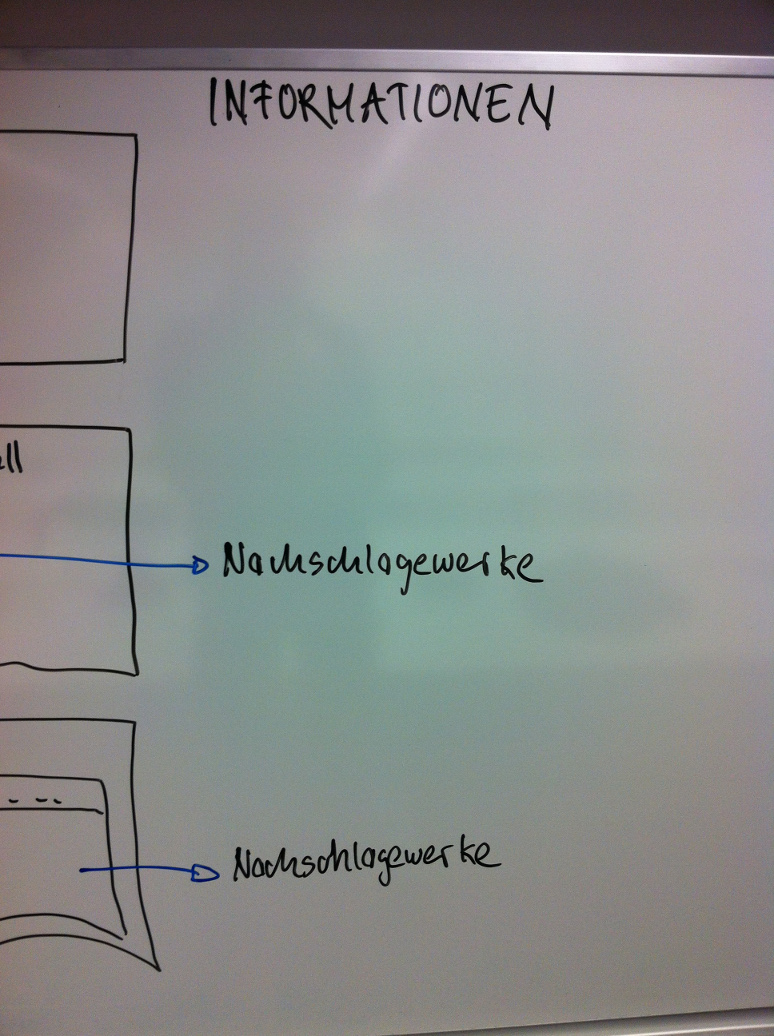 INFORMATIONEN
ell
Nachschlagewerke
Nachschlagewerke